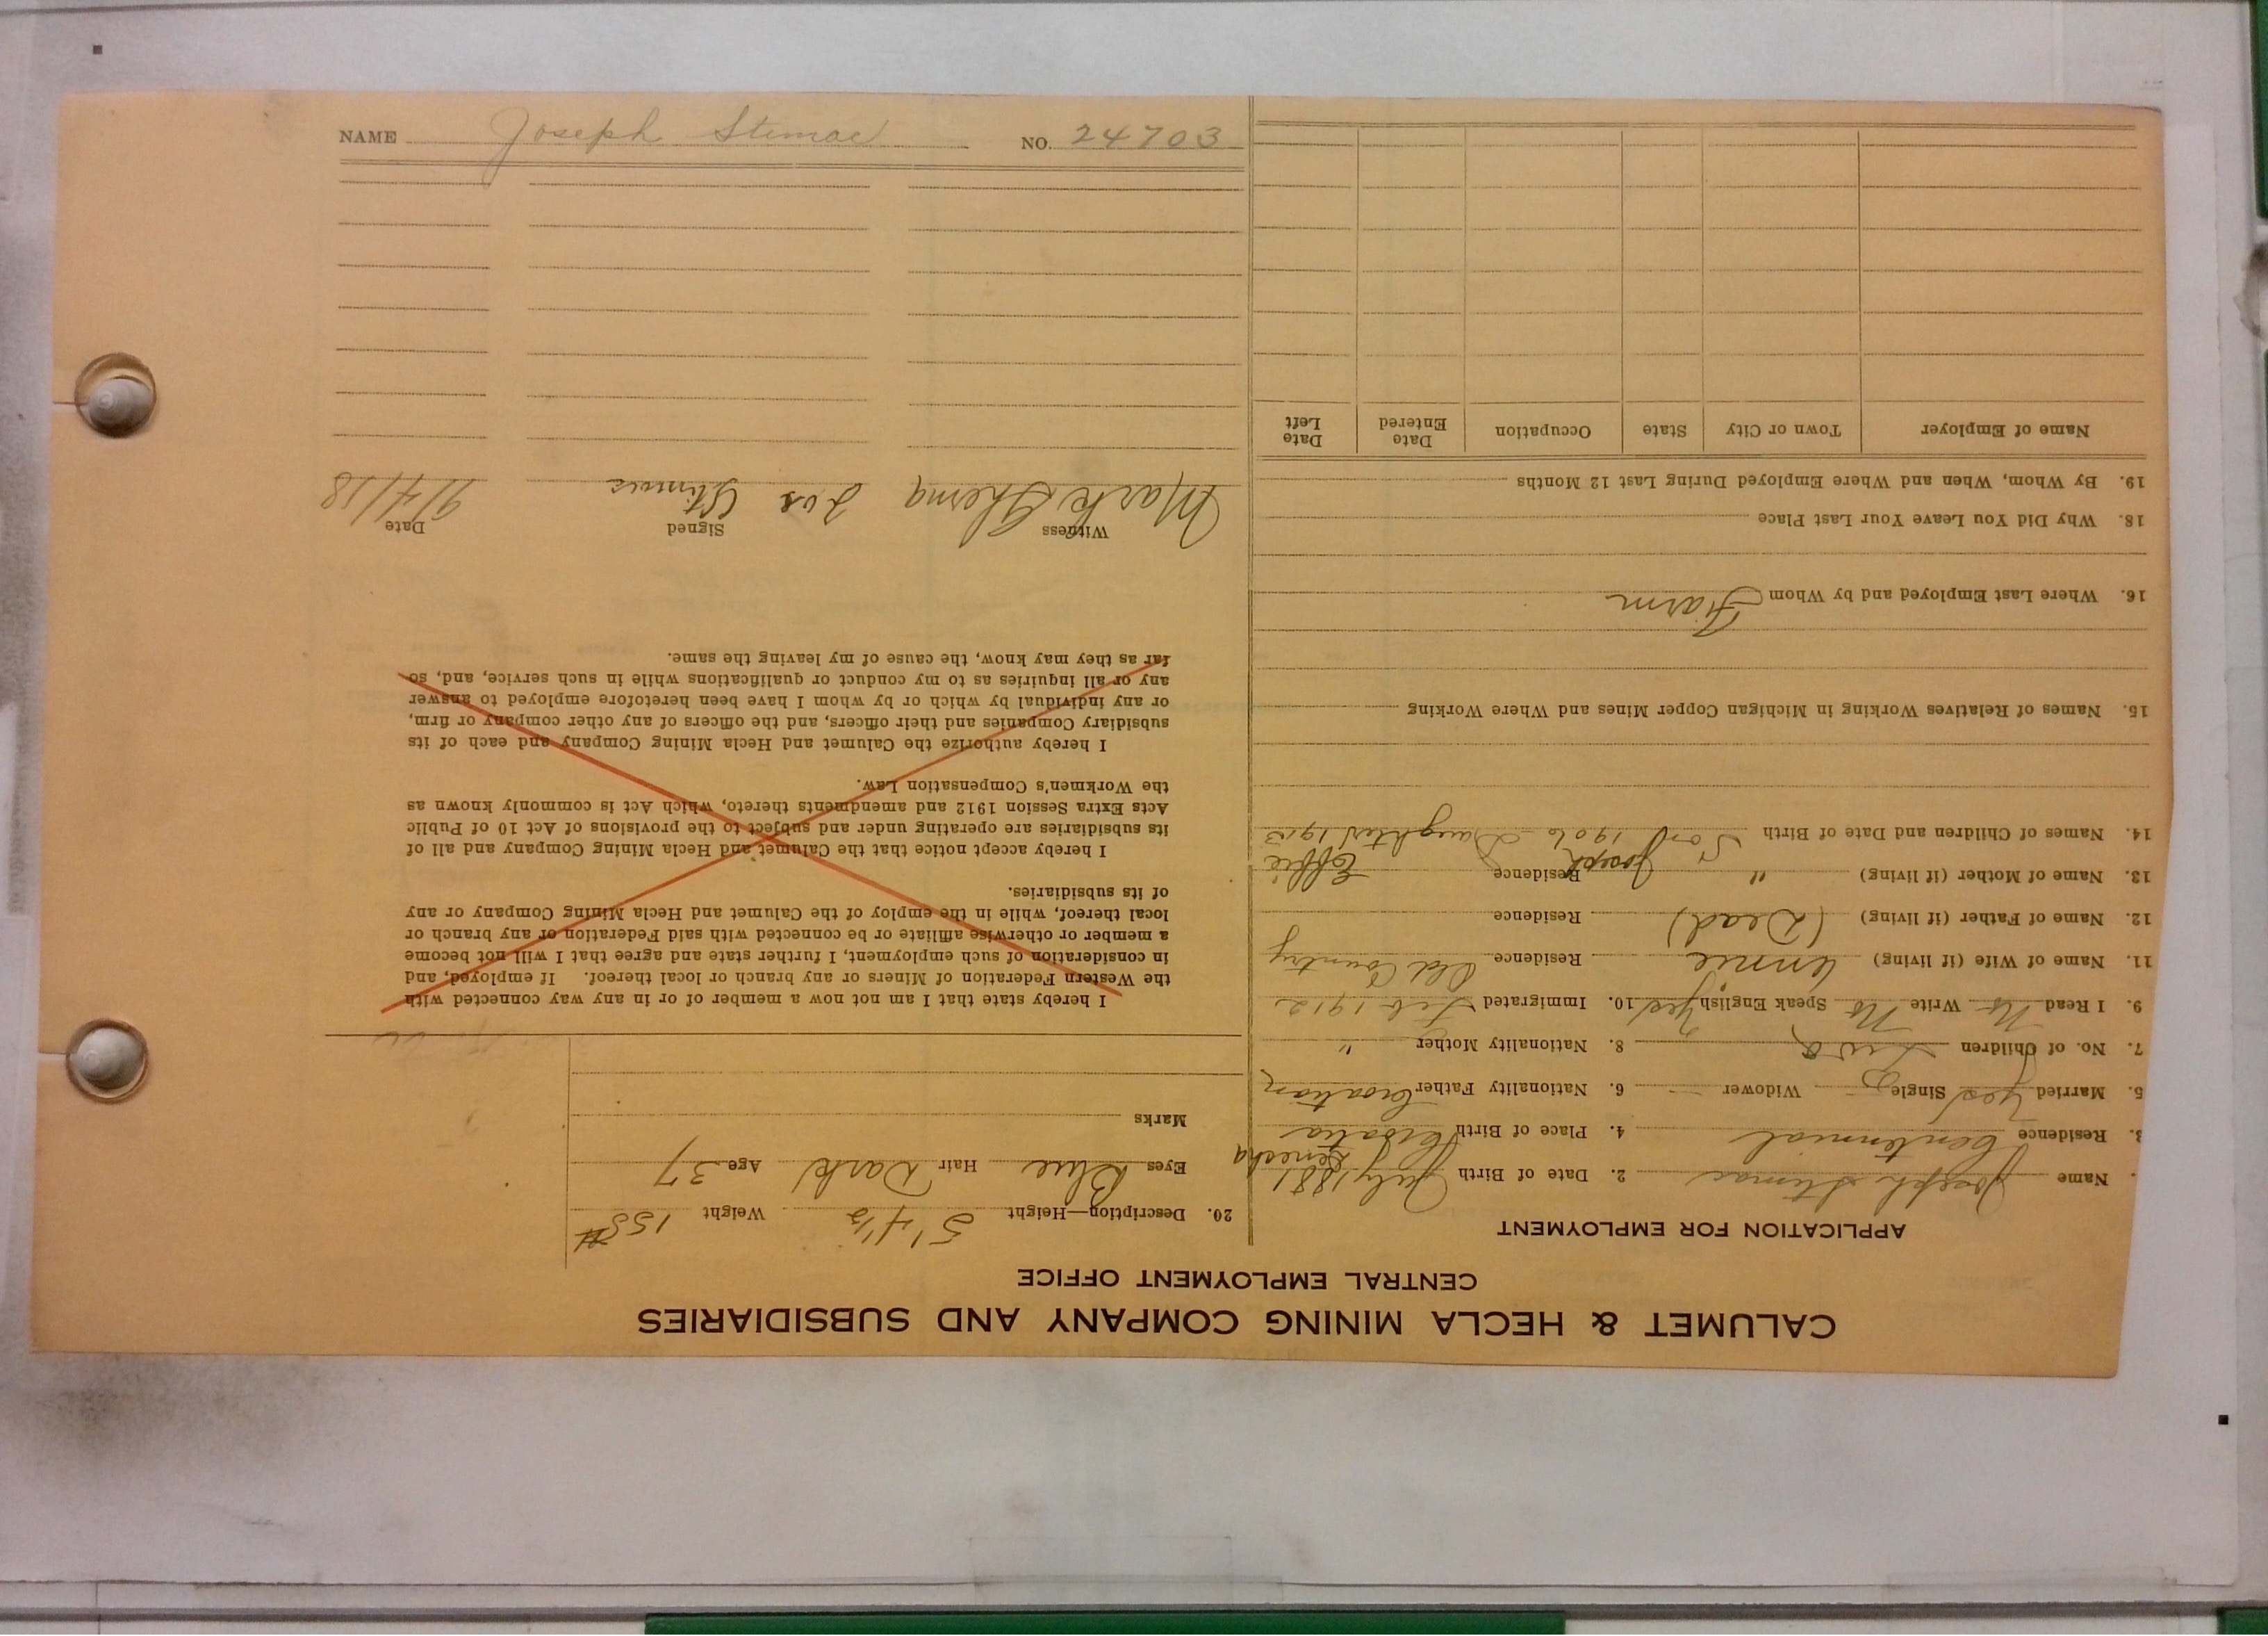 NAME Joseph Stimac NO. 24703
CALUMET & HECLA MINING COMPANY AND SUBSIDIARIES
CENTRAL EMPLOYMENT OFFICE
APPLICATION FOR EMPLOYMENT
Name Joseph Stimac 2. Date of Birth July 1881
3. Residence Centennial 4. Place of Birth Croatia
5. Married Yes Single — Widower — 6. Nationality Father Croatian
7. No. of Children Two 8. Nationality Mother "
9. I Read No Write No Speak English Yes 10. Immigrated Feb 1912
11. Name of Wife (if living) Annie Residence Old Country
12. Name of Father (if living) (Dead) Residence
13. Name of Mother (if living) " Residence
Joseph Effie
14. Names of Children and Date of Birth Son 1906 Daughter 1913
15. Names of Relatives Working in Michigan Copper Mines and Where Working
16. Where Last Employed and by Whom Farm
18. Why Did You Leave Your Last Place
19. By Whom, When and Where Employed During Last 12 Months
Name of Employer Town or City State Occupation Date Entered Date Left
20. Description—Height 5' 4 1/2 Weight 155 #
Eyes Blue Hair Dark Age 37
Marks
I hereby state that I am not now a member of or in any way connected with
the Western Federation of Miners or any branch or local thereof. If employed, and
in consideration of such employment, I further state and agree that I will not become
a member or otherwise affiliate or be connected with said Federation or any branch or
local thereof, while in the employ of the Calumet and Hecla Mining Company or any
of its subsidiaries.
I hereby accept notice that the Calumet and Hecla Mining Company and all of
its subsidiaries are operating under and subject to the provisions of Act 10 of Public
Acts Extra Session 1912 and amendments thereto, which Act is commonly known as
the Workmen's Compensation Law.
I hereby authorize the Calumet and Hecla Mining Company and each of its
subsidiary Companies and their officers, and the officers of any other company or firm,
or any individual by which or by whom I have been heretofore employed to answer
any or all inquiries as to my conduct or qualifications while in such service, and, so
far as they may know, the cause of my leaving the same.
Witness Signed Date
Mark Jos Stimac 9/4/18